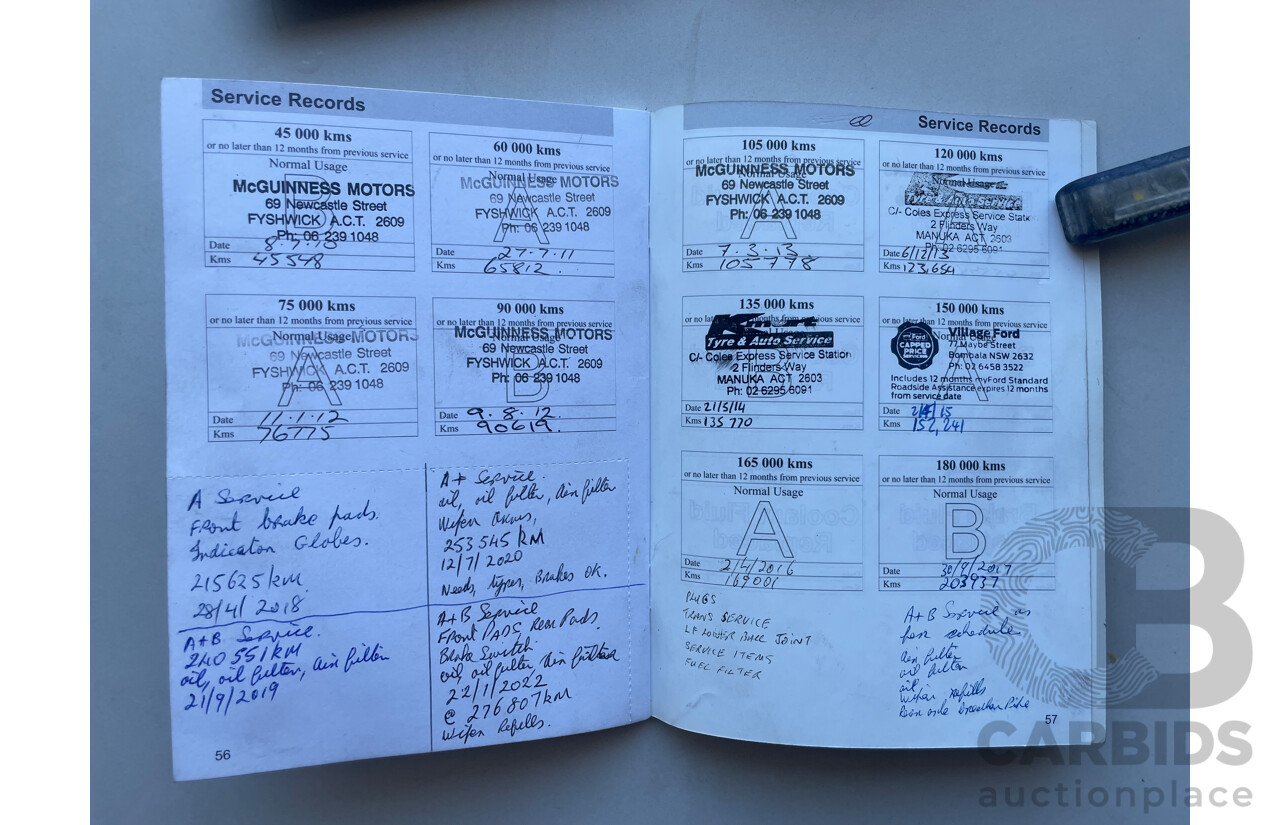 Service Records
45 000 kms
or no later than 12 months from previous service
Normal Usage
McGUINNESS MOTORS
69 Newcastle Street
FYSHWICK A.C.T. 2609
Ph: 06 239 1048
Date 8.7.10
Kms 45548
60 000 kms
or no later than 12 months from previous service
Normal Usage
McGUINNESS MOTORS
69 Newcastle Street
FYSHWICK A.C.T. 2609
Ph: 06 239 1048
A
Date 27.7.11
Kms 65812.
75 000 kms
or no later than 12 months from previous service
Normal Usage
McGUINNESS MOTORS
69 Newcastle Street
FYSHWICK A.C.T. 2609
Ph: 06 239 1048
A
Date 11.1.12
Kms 76775
90 000 kms
or no later than 12 months from previous service
Normal Usage
McGUINNESS MOTORS
69 Newcastle Street
FYSHWICK A.C.T. 2609
Ph: 06 239 1048
B
Date 9.8.12.
Kms 90619.
A Service
Front brake pads.
Indicator Globes.
215625 km
28/4/2018
A+ Service.
oil, oil filter, Air filter
Wiper
253545 KM
12/7/2020
Needs, types, Brakes OK.
A+B Service.
240551 KM
oil, oil filter, air filter
21/9/2019
A+B Service
Front PADS, Rear Pads.
Brake Switch
oil, oil filter Air filter
22/1/2022
@ 276807 km
Wiper Refills.
56
Service Records
105 000 kms
or no later than 12 months from previous service
Normal Usage
McGUINNESS MOTORS
69 Newcastle Street
FYSHWICK A.C.T. 2609
Ph: 06 239 1048
Date 7.3.13
Kms 105778
120 000 kms
or no later than 12 months from previous service
Normal Usage
C/- Coles Express Service Stati
2 Flinders Way
MANUKA ACT 2603
Ph 02 6295 6091
Date 6/12/13
Kms 123,654
135 000 kms
or no later than 12 months from previous service
Kmart
Tyre & Auto Service
C/- Coles Express Service Station
2 Flinders Way
MANUKA ACT 2603
Ph: 02 6295 6091
Date 21/5/14
Kms 135 770
150 000 kms
or no later than 12 months from previous service
Normal Usage
myFord
CAPPED
PRICE
SERVICING
Village Ford
77 Maybe Street
Bombala NSW 2632
Ph: 02 6458 3522
Includes 12 months myFord Standard
Roadside Assistance expires 12 months
from service date
Date 2/4/15
Kms 152,241
165 000 kms
or no later than 12 months from previous service
Normal Usage
A
Date 2/4/2016
Kms 169001
180 000 kms
or no later than 12 months from previous service
Normal Usage
B
Date 30/9/2017
Kms 203937
PLUGS
TRANS SERVICE
LF LOWER BALL JOINT
SERVICE ITEMS
FUEL FILTER
A+B Service as
per schedule
Air filter
oil filter
oil
wiper refills
57
CB
CARBIDS
auctionplace